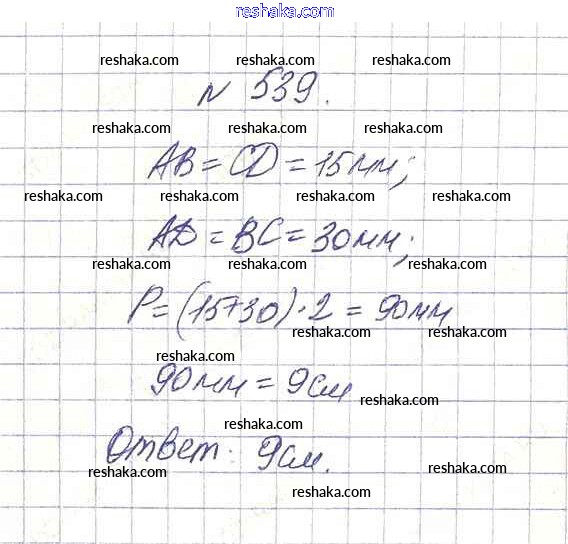 reshaka.com
reshaka.com reshaka.com reshaka.com
№ 539.
reshaka.com reshaka.com reshaka.com
AB = CD = 15 мм;
reshaka.com reshaka.com reshaka.com
AD = BC = 30 мм;
reshaka.com reshaka.com reshaka.com
P = (15+30) · 2 = 90 мм
reshaka.com reshaka.com
90 мм = 9 см
reshaka.com
reshaka.com
Ответ: 9 см.
reshaka.com reshaka.com
reshaka.com
reshaka.com